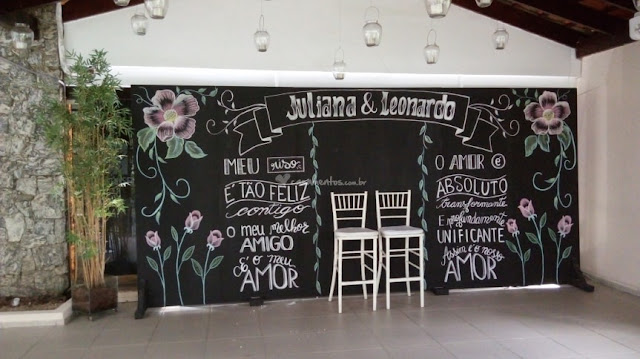 Juliana & Leonardo
MEU riso
É TÃO FELIZ
contigo
O meu melhor
AMIGO
é o meu
AMOR
O AMOR é
ABSOLUTO
transformante
E profundamente
UNIFICANTE
Assim é o nosso
AMOR
casamentos.com.br